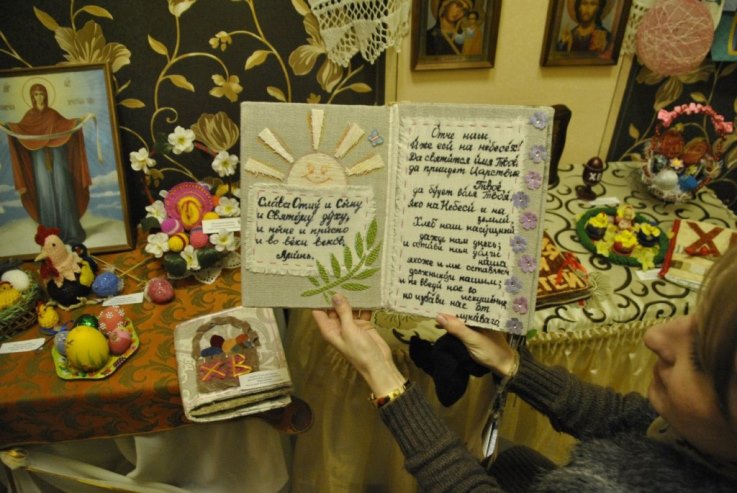 Слава Отцу и Сыну
и Святому духу,
и ныне и присто
и во веки веков.
Аминь.
Отче наш,
Иже еси на небесех!
Да святится имя Твое,
да приидет Царствие
Твое,
да будет воля Твоя
яко на Небеси и на
земли.
Хлеб наш насущный
даждь нам днесь;
и остави нам долги
наша
якоже и мы оставляем
должником нашим;
и не введи нас во
искушение
но избави нас от
лукавага
ХВ